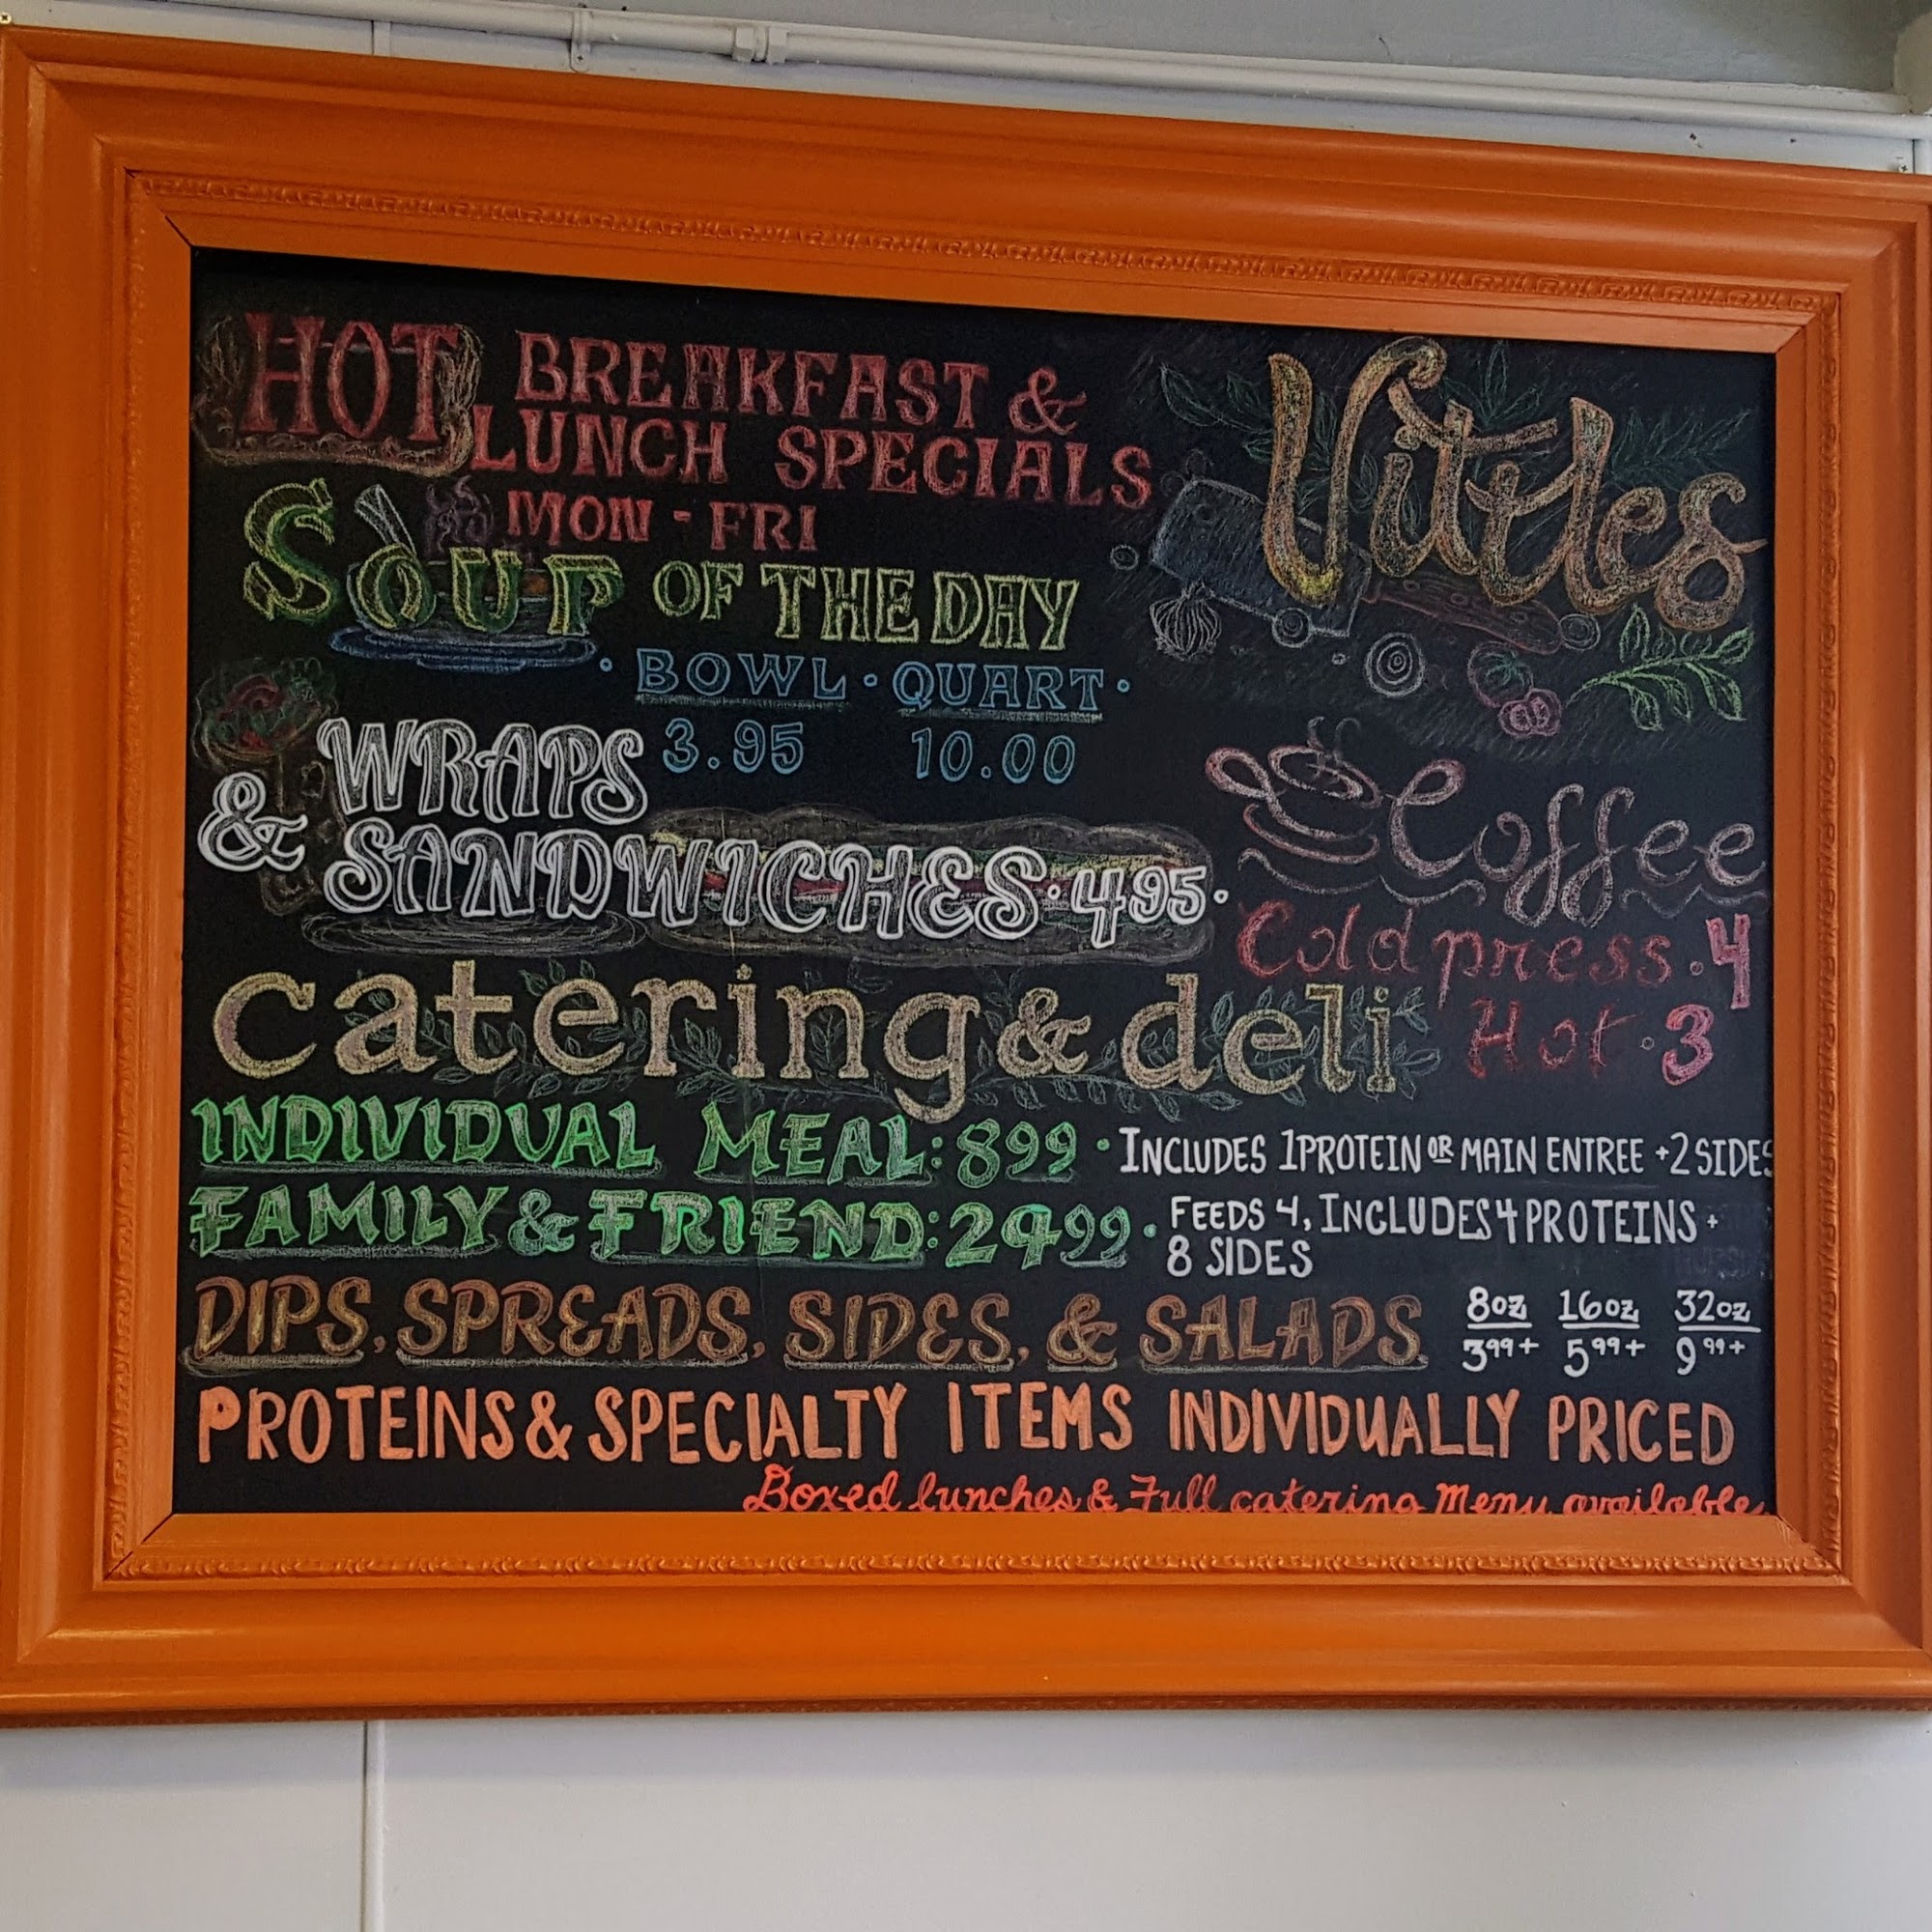 HOT BREAKFAST &
LUNCH SPECIALS
MON - FRI
SOUP OF THE DAY
· BOWL · QUART ·
3.95 10.00
WRAPS
& SANDWICHES · 495 ·
Vittles
Coffee
Cold press · 4
Hot · 3
catering & deli
INDIVIDUAL MEAL: 899 · INCLUDES 1 PROTEIN OR MAIN ENTREE + 2 SIDES
FAMILY & FRIEND: 2999 · FEEDS 4, INCLUDES 4 PROTEINS +
8 SIDES
DIPS, SPREADS, SIDES, & SALADS
8oz 16oz 32oz
399+ 599+ 999+
PROTEINS & SPECIALTY ITEMS INDIVIDUALLY PRICED
Boxed lunches & Full catering Menu available